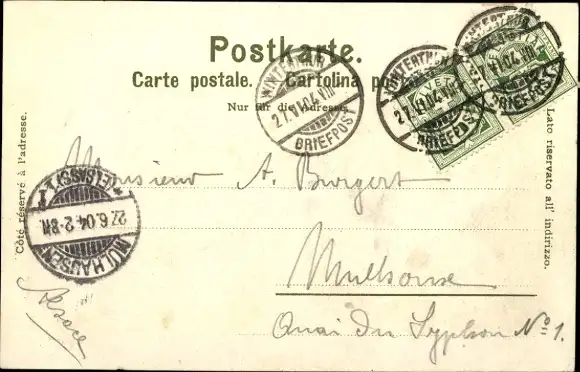 Postkarte.
Carte postale. Cartolina po
Nur für die Adresse.
Côté réservé à l'adresse.
Lato riservato all' indirizzo.
WINTERTHUR
27.VI.04.VIII
BRIEFPOST
WINTERTHUR
27.VI.04.VIII
BRIEFPOST
WINTERTHUR
04.VIII
BRIEFPOST
HELVETIA
MÜLHAUSEN
27.6.04.2-3N.
*(ELSASS)1.
Monsieur A. Burgert
Mulhouse
Quai du Syphon No: 1.
Alsace